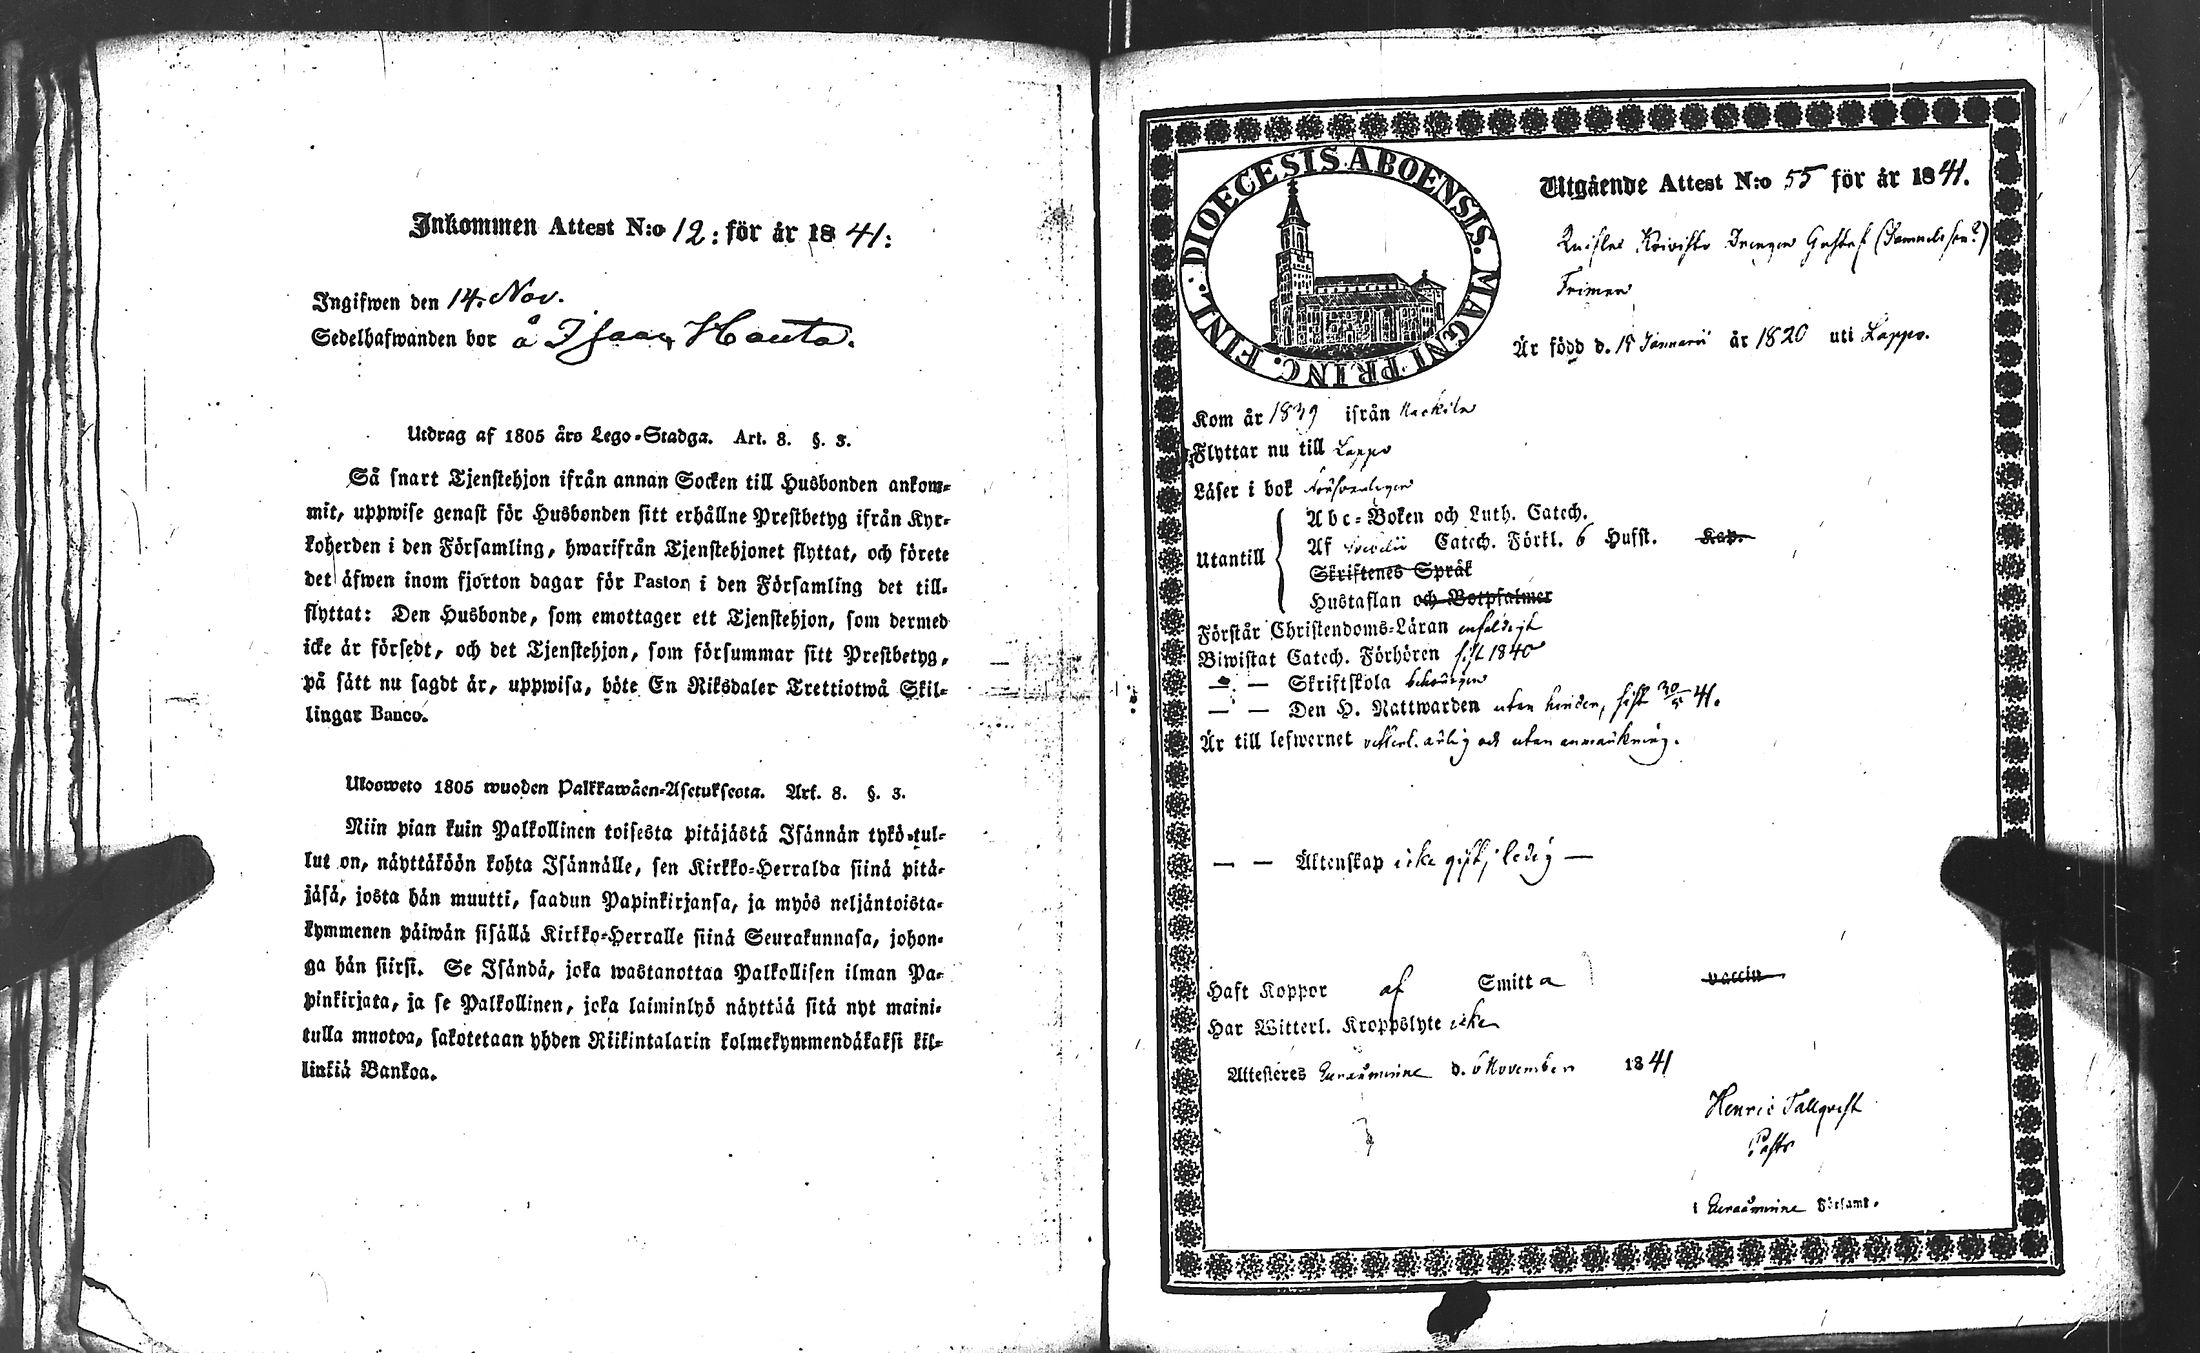 Inkommen Attest N:o 12: för år 1841:
Ingifwen den 14. Nov.
Sedelhafwanden bor å Isaac Hauta.
Utdrag af 1805 års Lego-Stadga. Art. 8. §. 3.
Så snart Tjenstehjon ifrån annan Socken till Husbonden ankom-
mit, uppwise genast för Husbonden sitt erhållne Prestbetyg ifrån Kyr-
koherden i den Församling, hwarifrån Tjenstehjonet flyttat, och förete
det äfwen inom fjorton dagar för Pastor i den Församling det till-
flyttat: Den Husbonde, som emottager ett Tjenstehjon, som dermed
icke är försedt, och det Tjenstehjon, som försummar sitt Prestbetyg,
på sätt nu sagdt är, uppwisa, böte En Riksdaler Trettiotwå Skil-
lingar Banco.
Ulosweto 1805 wuoden Palkkawäen-Asetuksesta. Art. 8. §. 3.
Niin pian kuin Palkollinen toisesta pitäjästä Isännän tykö-tul-
lut on, näyttäköön kohta Isännälle, sen Kirkko-Herralda siinä pitä-
jäsä, josta hän muutti, saadun Papinkirjansa, ja myös neljäntoista-
kymmenen päiwän sisällä Kirkko-Herralle siinä Seurakunnasa, johon-
ga hän siirsi. Se Isändä, joka wastanottaa Palkollisen ilman Pa-
pinkirjata, ja se Palkollinen, joka laiminlyö näyttää sitä nyt maini-
tulla muotoa, sakotetaan yhden Riikintalarin kolmekymmendäkaksi kil-
linkiä Bankoa.
DIOECESIS ABOENSIS. MAGNI PRINC. FINL.
Utgående Attest N:o 55 för år 1841.
Drengen Gustaf (Samuelsson?)
Är född d. Januarii år 1820 uti Lappo.
Kom år 1839 ifrån
Flyttar nu till Lappo
Läser i bok försvarligen
Utantill
Abc-Boken och Luth. Catech.
Af Svebelii Catech. Förkl. 6 Hufst. Kap.
Skriftenes Språk
Hustaflan och Botpsalmer
Förstår Christendoms-Läran enfaldigt
Biwistat Catech. Förhören sist 1840
— — Skriftskola behörigen
— — Den H. Nattwarden utan hinder, sist 30/5 41.
Är till lefwernet veterl. ärlig och utan anmärkning.
— — Äktenskap icke gift; ledig —
Haft Koppor af Smitta vaccin
Har Witterl. Kroppslyte icke
Attesteres Euraåminne d. 6 November 1841
Henric Tallqvist
Pastor
i Euraåminne Församl.